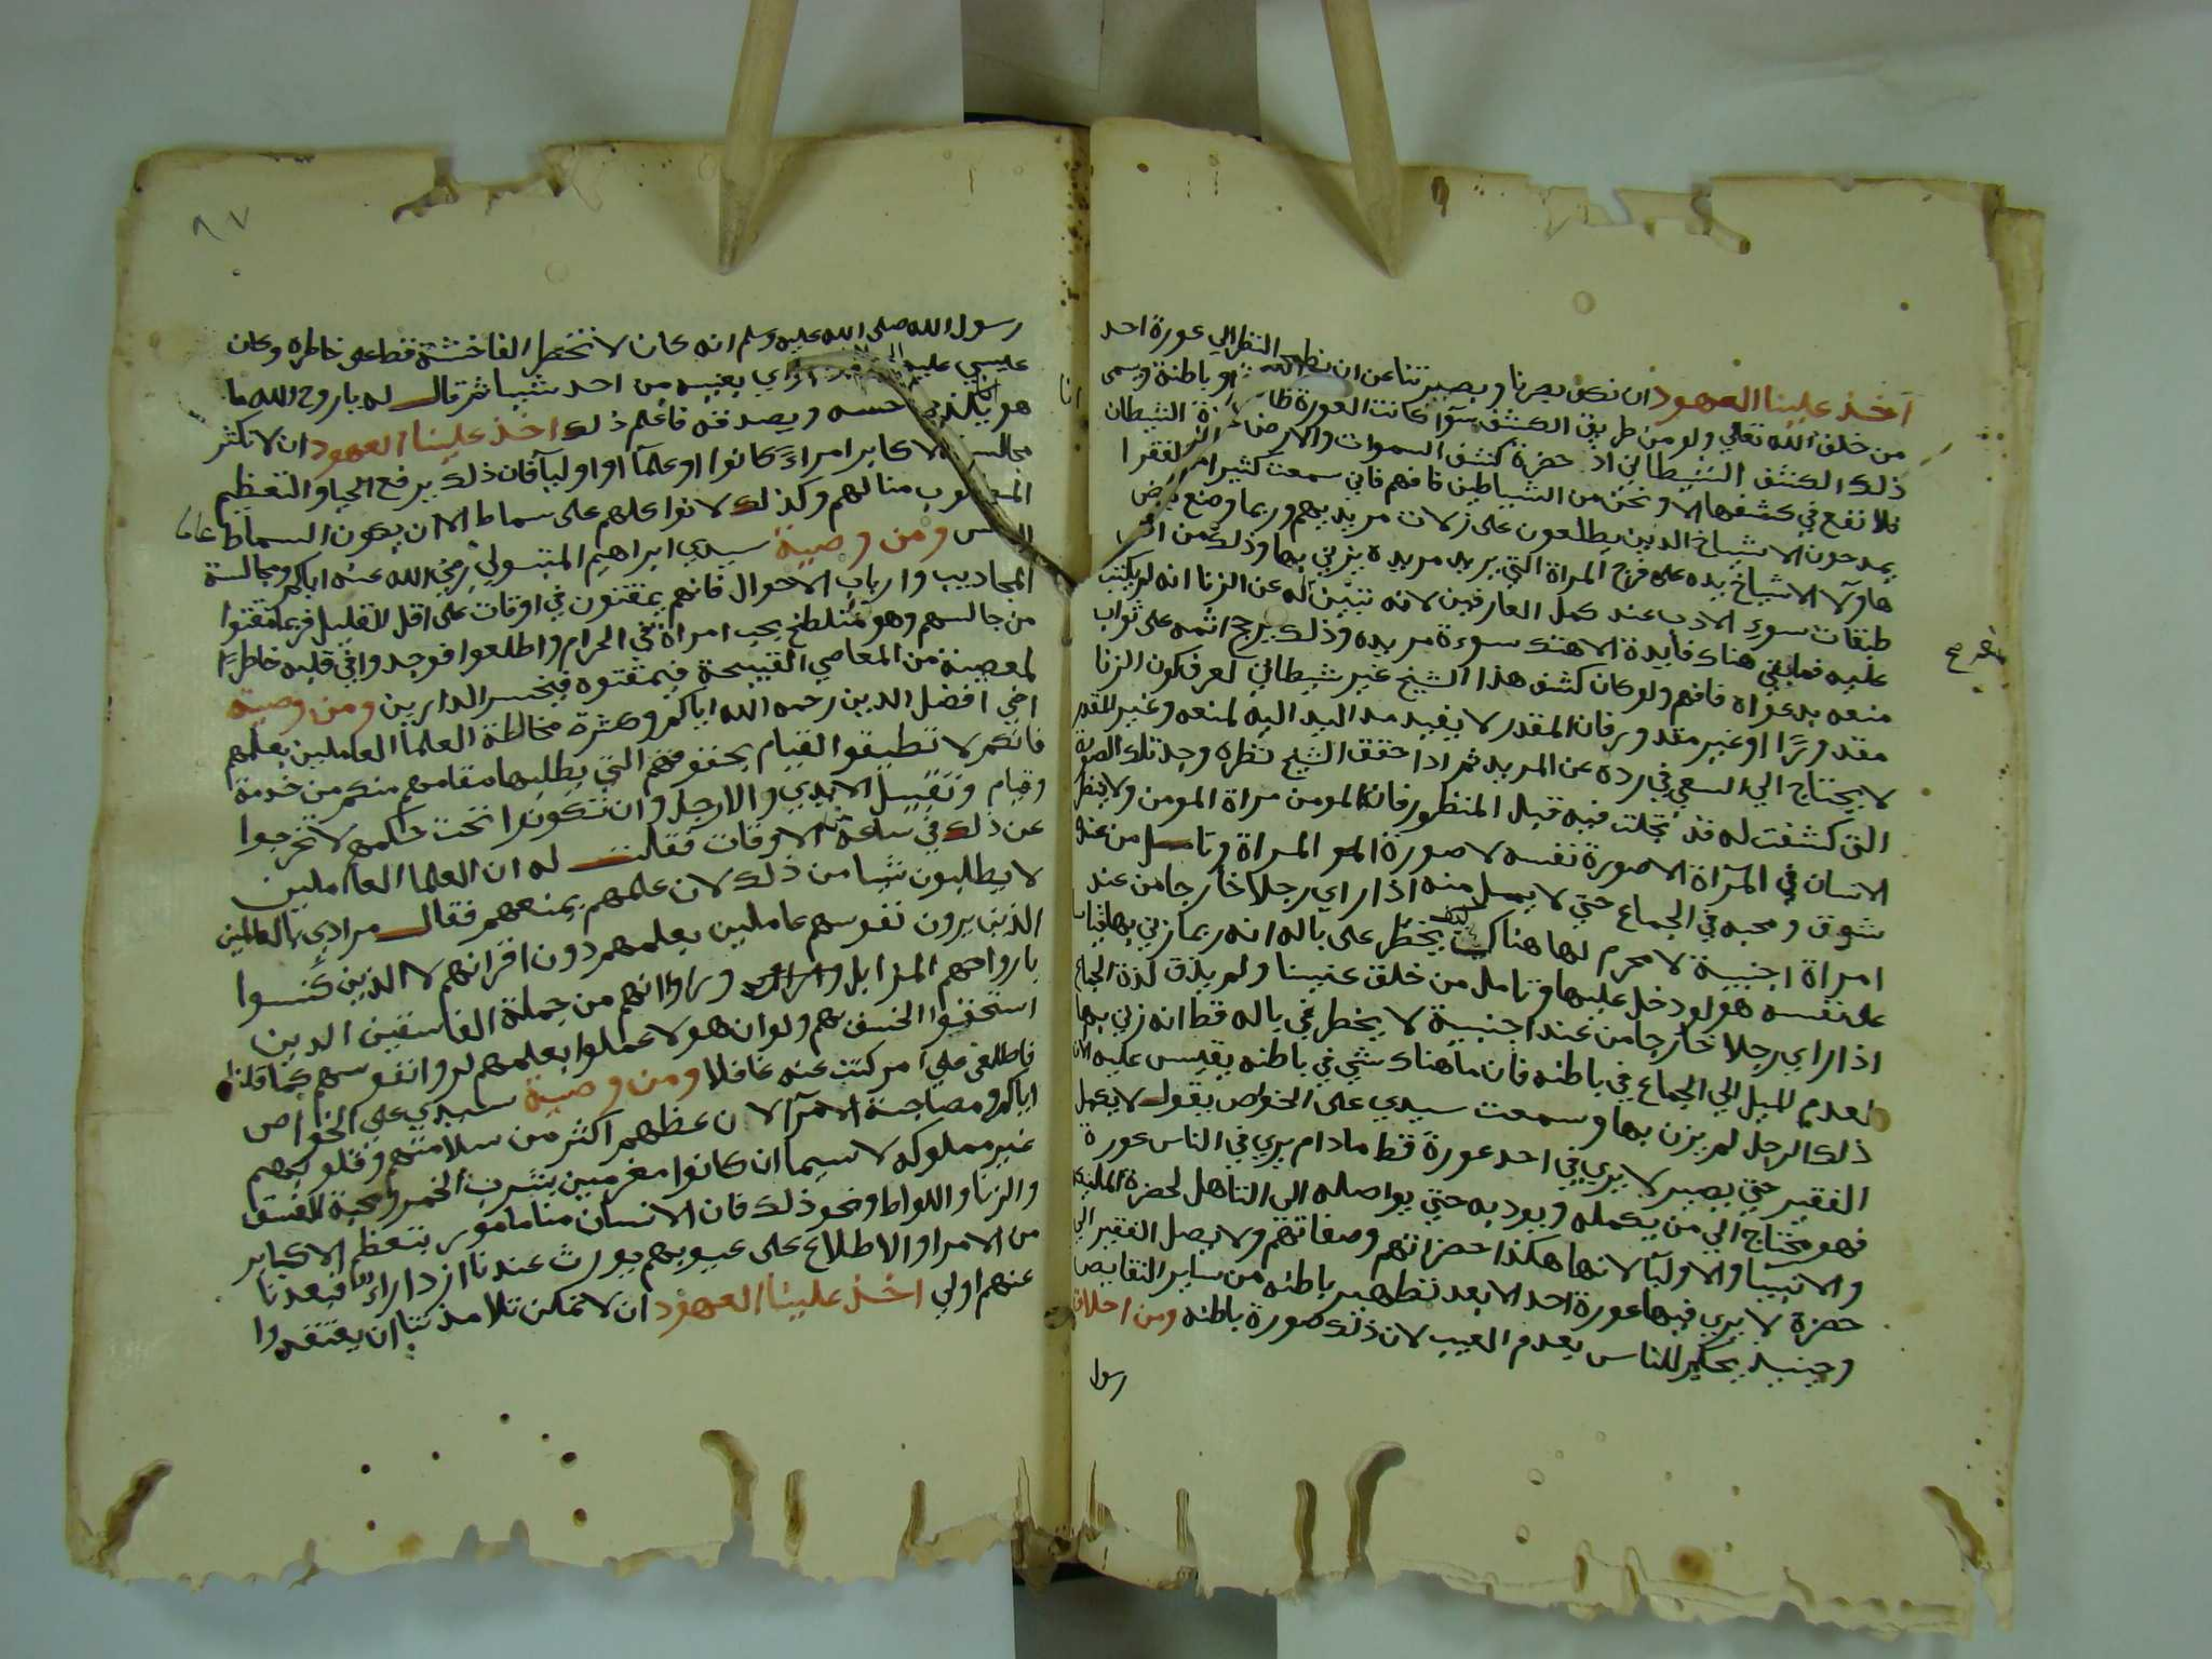 اخذ علينا العهود ان نكف بصرنا وبصيرتنا عن النظر الي عورة احد
من خلق الله تعالي ولو من طريق الكشف سوآ كانت العورة ظاهرة او باطنة ويسمى
ذلك الكشف الشيطاني اذ حضرة كشف السموات والارض الشيطان
فلا نفع في كشفها الا ونحن من الشياطين فافهم فاني سمعت كثيرا من الفقرا
يمدحون الاشياخ الذين يطلعون على زلات مريديهم وربما وضع بعض
هاولا الاشياخ يده على فرج المراة التي يريد مريده يزني بها وذلك من اقبح
طبقات سوء الادب عند كمل العارفين لانه تبين له عن الزنا انه لم يكتب
عليه فما بقي هناك فايدة الا هتك سوءة مريده وذلك يرجح اثمه على ثواب
منعه بدعواه فافهم ولو كان كشف هذا الشيخ غير شيطاني لعرف كون الزنا
مقدورًا او غير مقدور فان المقدر لا يفيد مد اليد اليه لمنعه وغير المقدر
لا يحتاج الي السعي في رده عن المريد ثم اذا حقق الشيخ نظره وجد تلك الصورة
التي كشفت له قد تجلت فيه قبل المنظور فان المومن مراة المومن ولا ينظر
الانسان في المرآة الا صورة نفسه لا صورة المراة وتامل من عنده
شوق ومحبه في الجماع حتي لا يمل منه اذا راي رجلا خارجا من عند
امراة اجنبية لا محرم لها هناك كيف يخطر على باله انه ربما زني بها قياسا
على نفسه هو لو دخل عليها وتامل من خلق عنينا ولم يذق لذة الجماع
اذا راي رجلا خارجا من عند اجنبية لا يخطر في باله قط انه زني بها
لعدم الميل الي الجماع في باطنه فان ما هناك شي في باطنه يقيس عليه الان
ذلك الرجل لم يزن بها وسمعت سيدي على الخواص يقول لا يكمل
الفقير حتي يصير لا يري في احد عورة قط ما دام يري في الناس عورة
فهو محتاج الي من يكمله ويودبه حتي يواصله الي التاهل لحضرة الملايكة
والانبيا والاوليا لانها هكذا حضراتهم وصفاتهم ولا يصل الفقير الي
حضرة لا يري فيها عورة احد الا بعد تطهير باطنه من ساير النقايص
وحينيذ يحكم للناس بعدم العيب لان ذلك صورة باطنه ومن اخلاق
رسول
٨٧
رسول الله صلى الله عليه وسلم انه كان لا تخطر الفاحشة قط على خاطره وكان
عيسي عليه اذا راي بعينيه من احد شيا ثم قال له ياروح الله ما
هو يكذب حسه ويصدقه فاعلم ذلك اخذ علينا العهود ان لا نكثر
مجالسة الاكابر امراءً كانوا او علمآ او اوليآ فان ذلك يرفع الحيا والتعظيم
المطلوب منا لهم وكذلك لا نواكلهم على سماط الا ان يكون السماط عاما
ومن وصية سيدي ابراهيم المتبولي رضي الله عنه اياكم ومجالسة
المجاذيب وارباب الاحوال فانهم يمقتون في اوقات على اقل القليل فربما مقتوا
من جالسهم وهو متلطخ بحب امراة في الحرام واطلعوا فوجدوا في قلبه خاطرًا
لمعصية من المعاصي القبيحة فيمقتوه فيخسر الدارين ومن وصية
اخي افضل الدين رحمه الله اياكم وكثرة مخالطة العلما العاملين بعلمهم
فانكم لا تطيقوا القيام بحقوقهم التي يطلبها مقامهم منكم من خدمة
وقيام وتقبيل الايدي والارجل وان تكونوا تحت حكمهم لا تخرجوا
عن ذلك في ساعة من الاوقات فقلت له ان العلما العاملين
لا يطلبون شيا من ذلك لان علمهم يمنعهم فقال مرادي بالعاملين
الذين يرون نفوسهم عاملين بعلمهم دون اقرانهم لا الذين كنسوا
بارواحهم المزابل وراوا انهم من جملة الفاسقين الذين
استحقوا الخسف بهم ولو ان هولا عملوا بعلمهم لروا نفوسهم كما قلنا
فاطلعني على امر كنت عنه غافلا ومن وصية سيدي على الخواص
اياكم ومصاحبة الامرآ لان عطبهم اكثر من سلامتهم وقلوبهم
غير مملوكه لا سيما ان كانوا مغرمين بشرب الخمر ومحبة الفسق
والزنا واللواط ونحو ذلك فان الانسان منا مامور بتعظيم الاكابر
من الامرا والاطلاع على عيوبهم يورث عندنا ازدراء لهم فبعدنا
عنهم اولي اخذ علينا العهود ان لا نمكن تلامذتنا ان يعتقدوا